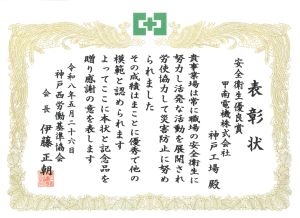 表彰状
安全衛生優良賞
甲南電機株式会社
神戸工場 殿
貴事業場は常に職場の安全衛生に
努力し活発な活動を展開され
労使協力して災害防止に努め
られました
その成績はまことに優秀で他の
模範と認められます
よってここに本状と記念品を
贈り感謝の意を表します
令和八年五月二十六日
神戸西労働基準協会
会長 伊藤正朝